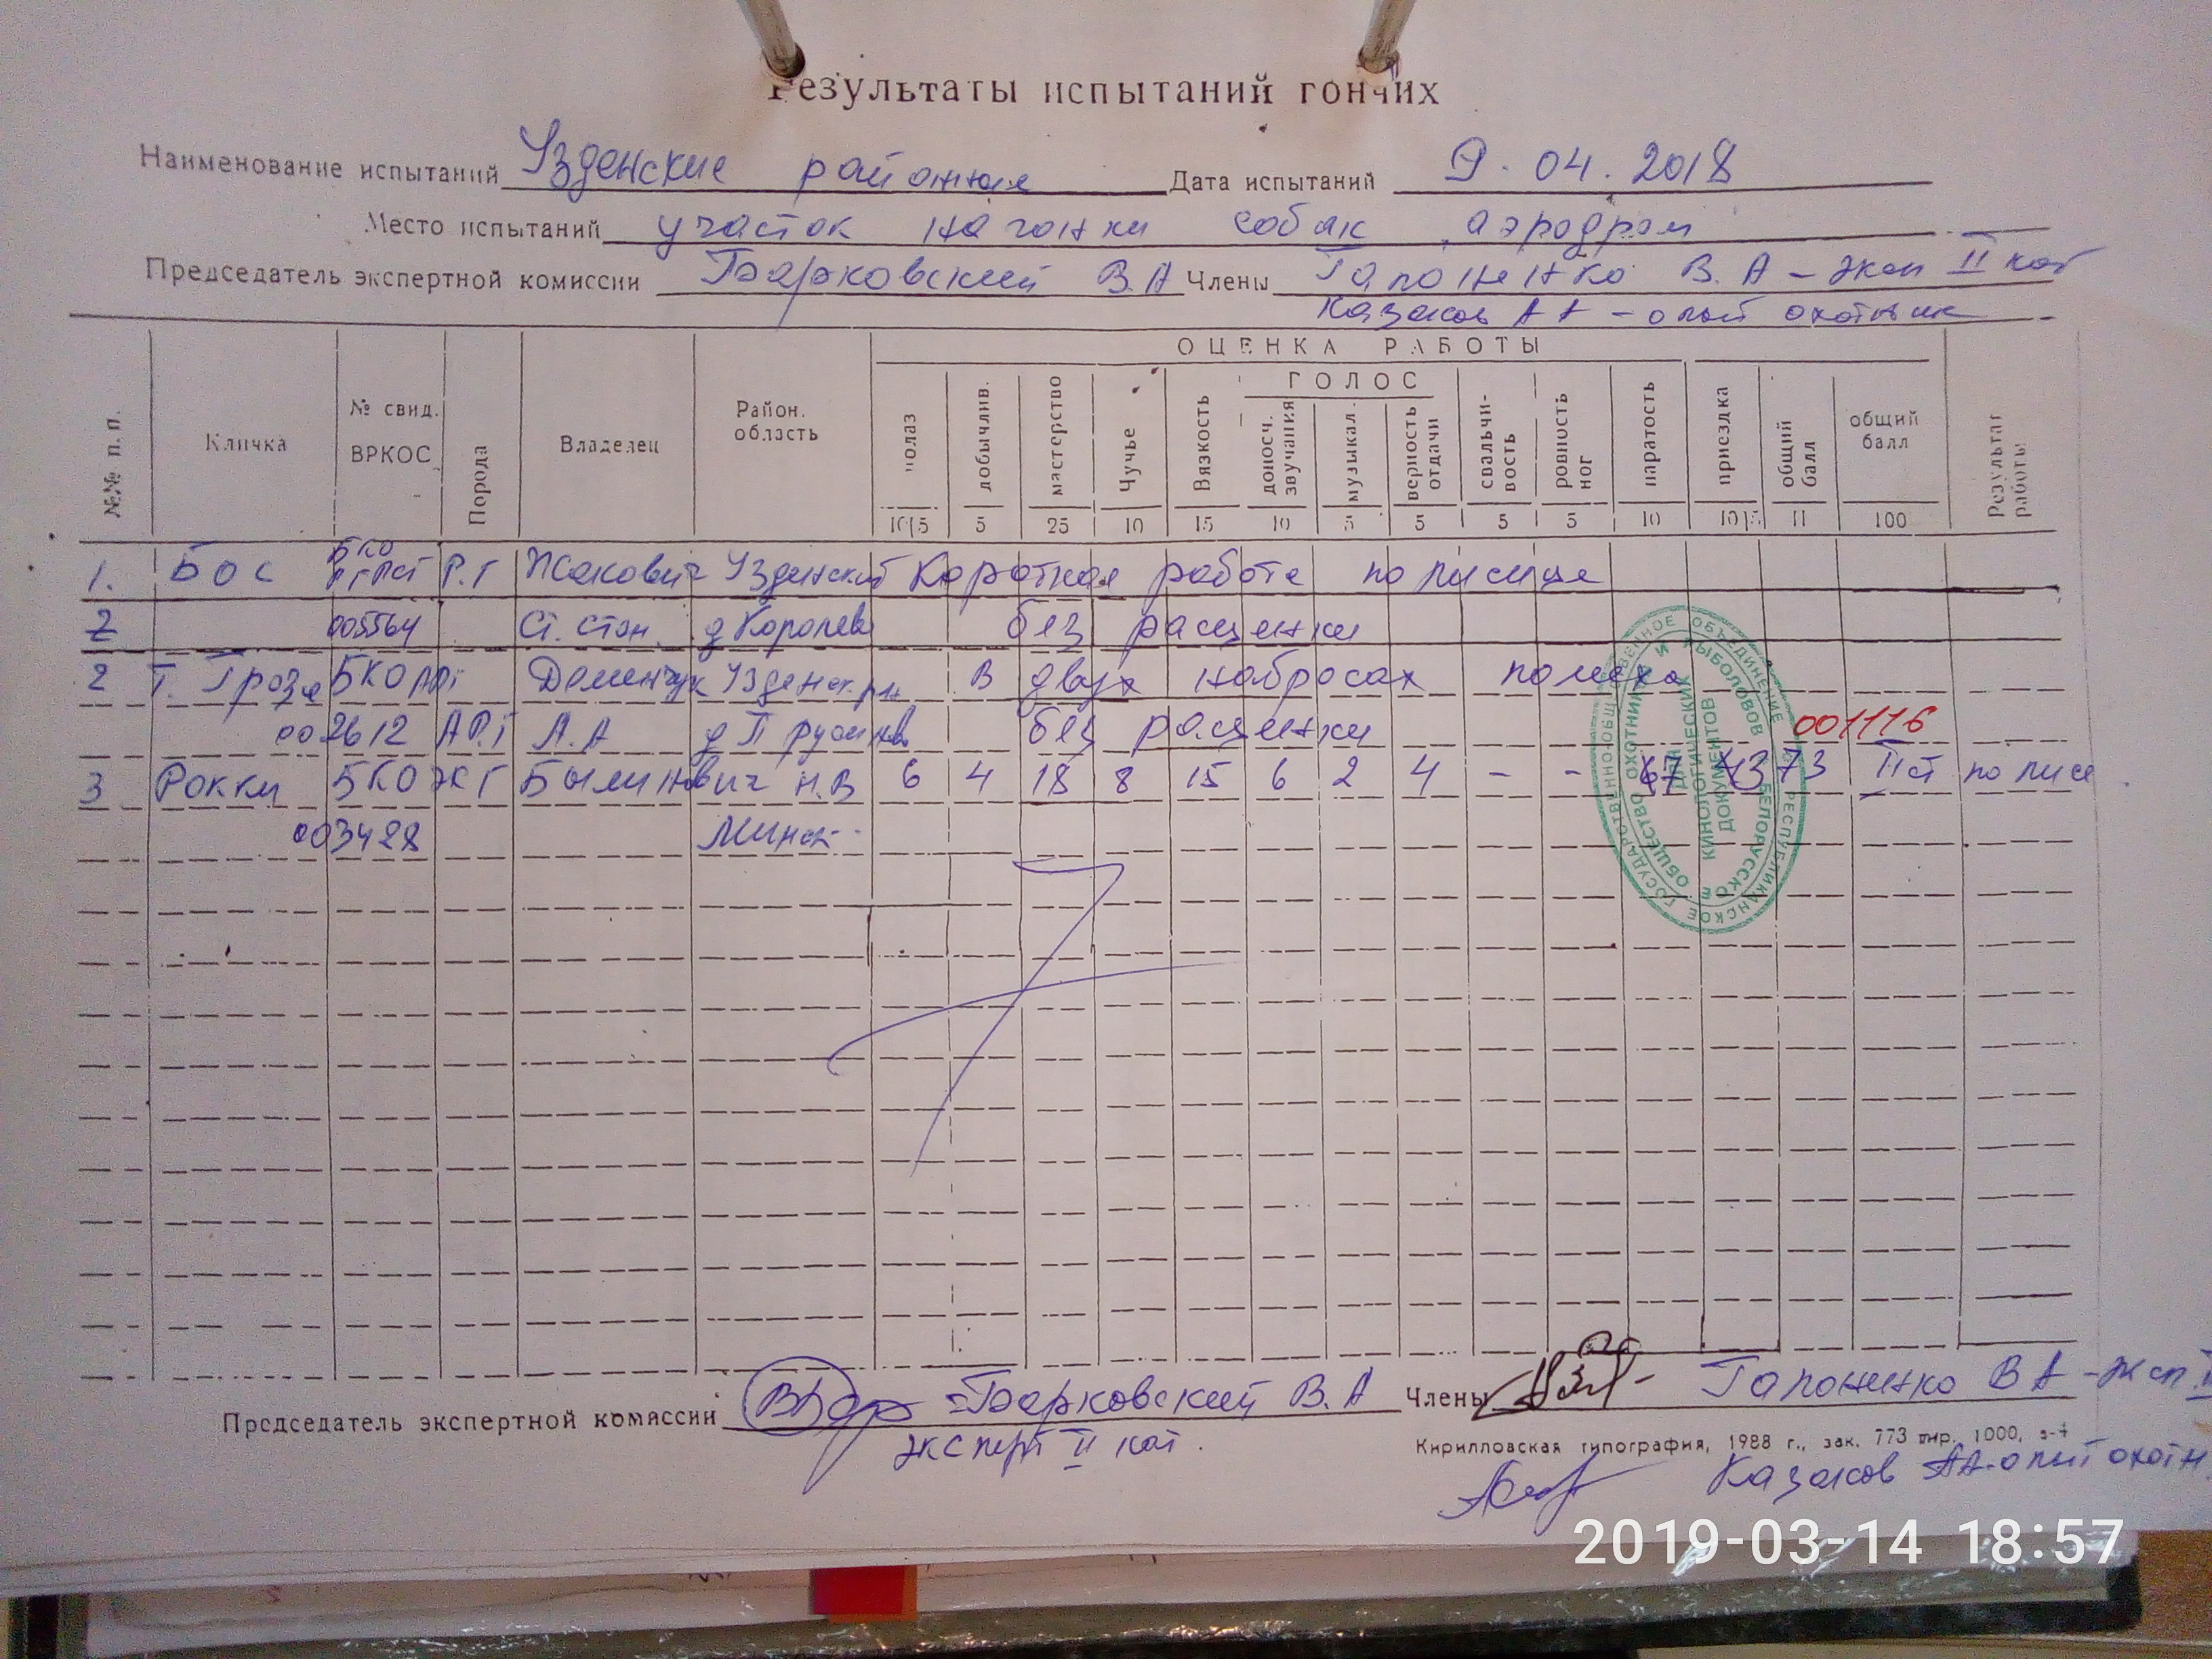 Результаты испытаний гончих
Наименование испытаний Узденские районные Дата испытаний 9.04.2018
Место испытаний участок нагонки собак аэродром
Председатель экспертной комиссии Барковский В.А Члены Гапоненко В.А – эксп II кат
Казаков АА – опыт охотник
№№ п. п.
Кличка
№ свид. ВРКОС
Порода
Владелец
Район. область
ОЦЕНКА РАБОТЫ
ГОЛОС
полаз
добычлив.
мастерство
Чутье
Вязкость
доносч. звучания
музыкал.
верность отдачи
свальчивость
ровность ног
паратость
приездка
общий балл
общий балл
Результат работы
10|5 5 25 10 15 10 5 5 5 5 10 10 11 100
1. Бос БКО Р.Г Жакович Узденский Короткая работа по лисице
2 005564 Ст. стан. д Королев без расценки
2 Т. Гроза БКО Деменчук Узденск. рн В двух набросах помеха
002612 АР.Г А.А без расценки 001116
3 Рокки БКО Былинович Н.В 6 4 18 8 15 6 2 4 – – 73 II ст по лисе
003428 Минск
ГОСУДАРСТВЕННО-ОБЩЕСТВЕННОЕ ОБЪЕДИНЕНИЕ
РЕСПУБЛИКАНСКОЕ
БЕЛОРУССКОЕ ОБЩЕСТВО ОХОТНИКОВ И РЫБОЛОВОВ
ДЛЯ КИНОЛОГИЧЕСКИХ ДОКУМЕНТОВ
Председатель экспертной комиссии Барковский В.А Члены Гапоненко В А – эксп II
эксперт II кат.
Кирилловская типография, 1988 г., зак. 773 тир. 1000, з-4
Казаков АА-опыт охотн
2019-03-14 18:57